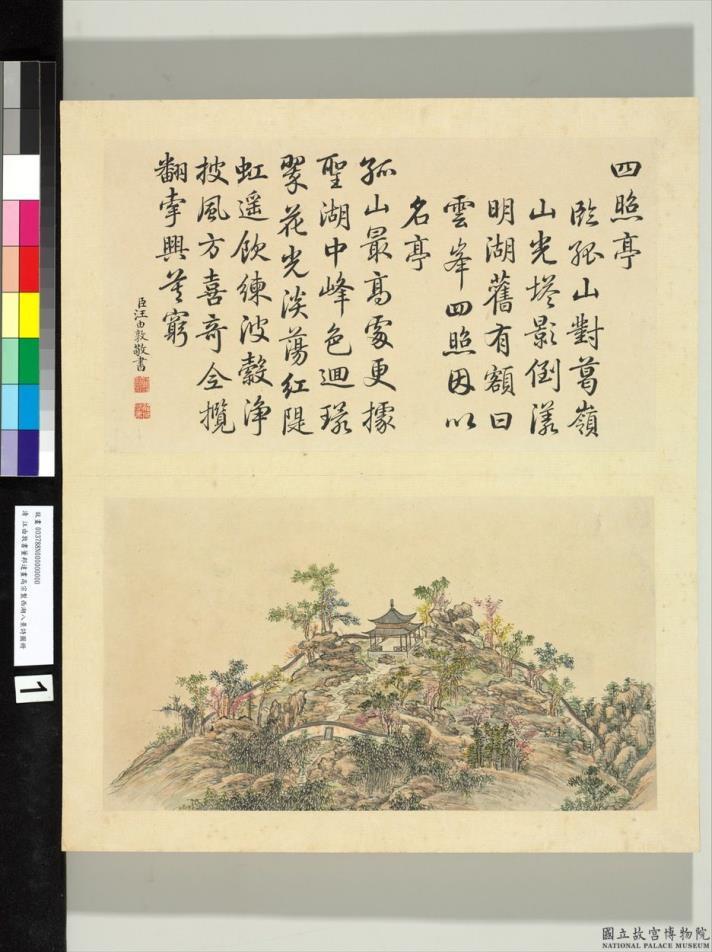 四照亭
臨孤山對葛嶺
山光塔影倒漾
明湖舊有額曰
雲峯四照因以
名亭
孤山最高處更據
聖湖中峰色迴環
翠花光淡蕩紅隄
虹遥飲練波縠淨
披風方喜奇全攬
翻牽興莫窮
臣汪由敦敬書
故畫 00378800000000
清 汪由敦書董邦達畫高宗製西湖八景詩圖冊
1
國立故宮博物院
NATIONAL PALACE MUSEUM